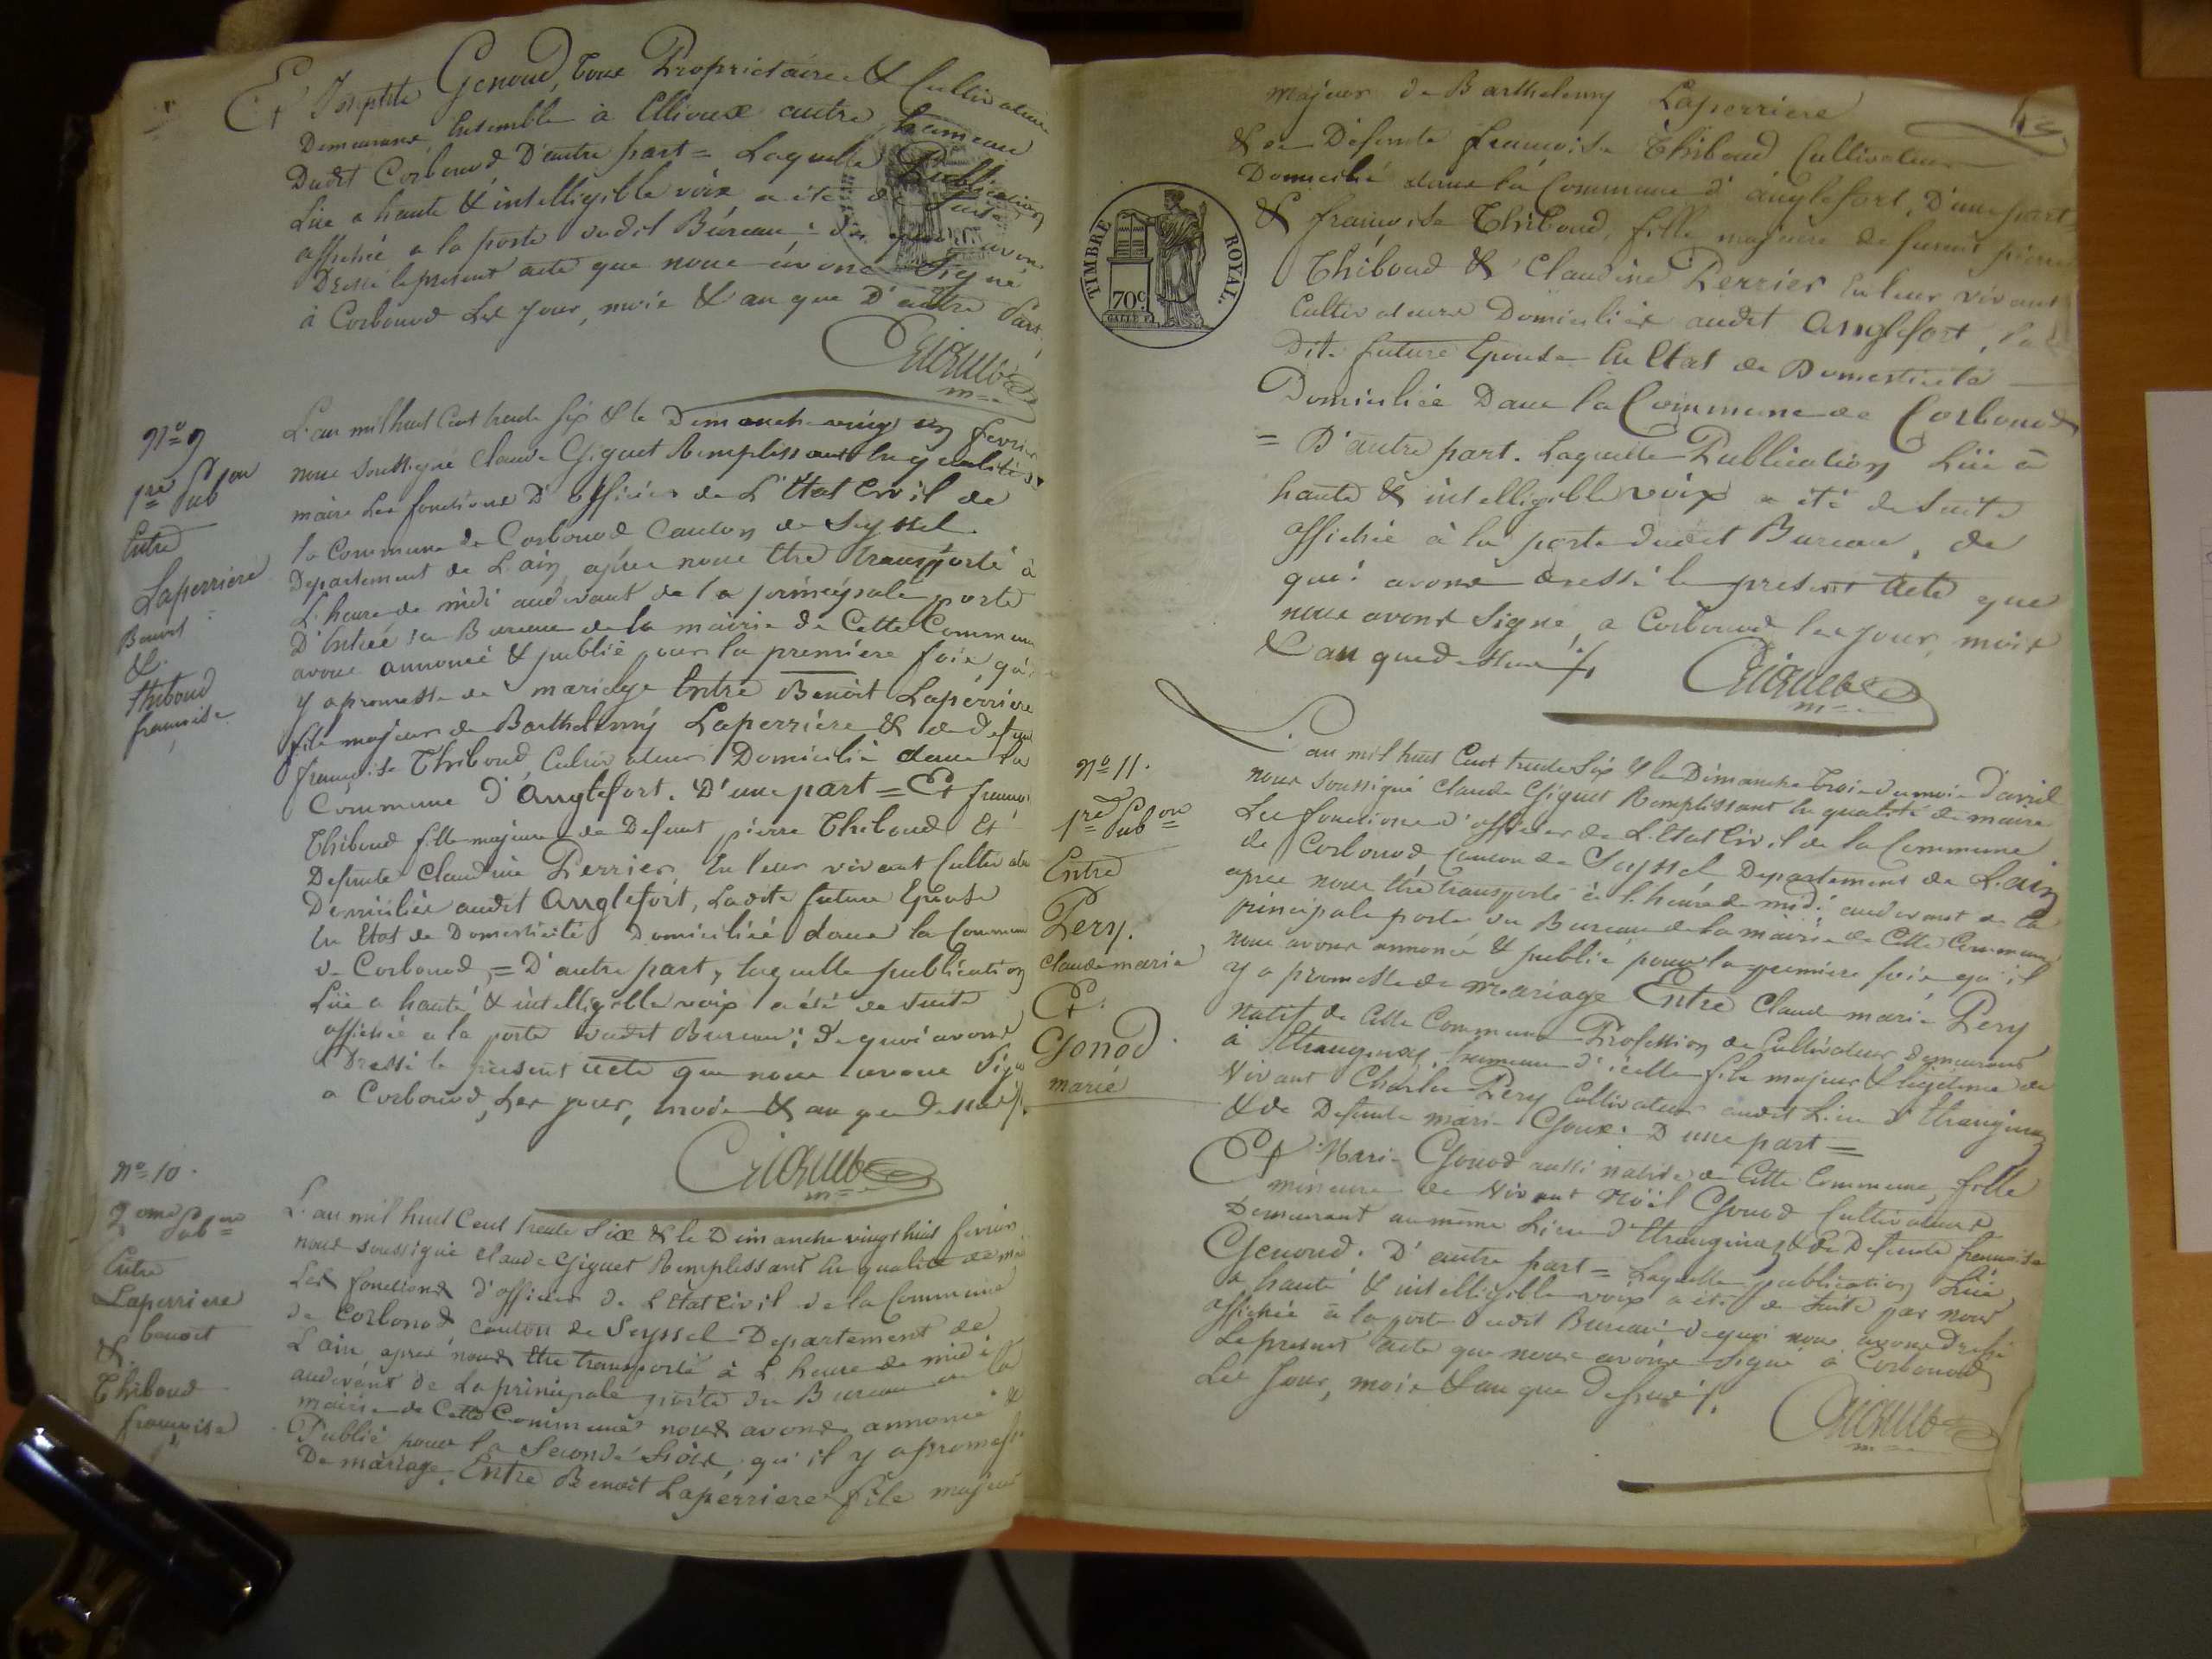 Et Josephte Genoud, tous Propriétaires & Cultivateurs
Demeurans, Ensemble à Ellioux autre hameau
Dudit Corbonod, D'autre part = Laquelle Publication
Lue a haute & intelligible voix a été de suite
affichée a la porte dudit Bureau: avons
Dressé le présent acte que nous avons Signé
à Corbonod Les Jour, mois & an que D'autre Part
N° 9
1re Pub on
Entre
Laperriere
Benoit
&
Thiboud
françoise
L'an mil huit Cent trente Six & le Dimanche vingt un fevrier
nous soussigné Claude Giguet Remplissant En qualité de
maire Les fonctions D'officier de L'Etat Civil de
la Commune de Corbonod Canton de Seyssel
Departement de L'ain, après nous Etre transporté à
L'heure de midi audevant de la principale porte
D'Entrée du Bureau de la mairie de Cette Commune
avons annoncé & publié pour la premiere fois qu'il
y a promesse de mariage Entre Benoit Laperriere
fils majeur de Barthelemy Laperriere & de Defunte
françoise Thiboud, Cultivateur Domicilié dans la
Commune d'Anglefort. D'une part = Et françoise
Thiboud fille majeure de Defunt pierre Thiboud Et
Defunte Claudine Perrier, En leur vivant Cultivateurs
Domiciliés audit Anglefort, Ladite future Epouse
En Etat de Domesticité Domiciliée dans la Commune
de Corbonod, = D'autre part, laquelle publication
Lüe a haute & intelligible voix a été de suite
affichée a la porte dudit Bureau; De quoi avons
Dressé le présent acte que nous avons Signé
a Corbonod, Les jour, mois & an que dessus /.
N° 10.
2eme Pub on
Entre
Laperriere
benoit
&
Thiboud
françoise
L'an mil huit Cent trente Six & le Dimanche vingt huit fevrier
nous soussigné Claude Giguet Remplissant En qualité de maire
Les fonctions d'officier de L'Etat Civil de la Commune
de Corbonod, canton de Seyssel Departement de
L'ain, après nous Etre transporté à L'heure de midi
audevant de La principale porte du Bureau de la
mairie de Cette Commune nous avons annoncé &
Publié pour la Seconde fois, qu'il y a promesse
De mariage, Entre Benoit Laperriere fils majeur
majeur de Barthelemy Laperriere
& de Defunte françoise Thiboud Cultivateur
Domicilié dans la Commune d'Anglefort, D'une part
& françoise Thiboud, fille majeure de funt pierre
Thiboud & Claudine Perrier En leur vivant
Cultivateurs Domiciliés audit Anglefort, la
Dite future Epouse En Etat de Domesticité
Domiciliée Dans la Commune de Corbonod
= D'autre part. Laquelle Publication Lüe à
haute & intelligible voix a été de suite
affichée à la porte dudit Bureau, de
quoi avons dressé le present acte que
nous avons Signé, a Corbonod les jour, mois
& an que dessus /.
TIMBRE ROYAL.
70c
N° 11.
1re Pub on
Entre
Pery.
Claude marie
Et.
Gonod
marie
L'an mil huit Cent trente Six & le Dimanche trois du mois d'avril
nous soussigné Claude Giguet Remplissant En qualité de maire
Les fonctions d'officier de L'Etat Civil de la Commune
de Corbonod Canton de Seyssel Departement de L'ain
apres nous Etre transporté à l'heure de midi audevant de la
principale porte du Bureau de la mairie de Cette Commune
nous avons annoncé & publié pour la premiere fois qu'il
y a promesse de mariage Entre Claude marie Pery
natif de Cette Commune Profession de Cultivateur, Demeurant
à Etranginaz hameau d'icelle fils majeur & legitime de
vivant Charles Pery Cultivateur audit Lieu d'Etranginaz
& de Defunte marie Goux: D'une part =
Et Marie Gonod aussi native de Cette Commune, fille
mineure de vivant Noël Gonod Cultivateur
Demeurant au même Lieu d'Etranginaz & de Defunte françoise
Genoud. D'autre part = Laquelle publication Lüe
a haute & intelligible voix a été de Suite par nous
affichée à la porte dudit Bureau, de quoi nous avons dressé
le present acte que nous avons Signé a Corbonod
Les Jour, mois & an que Dessus /.